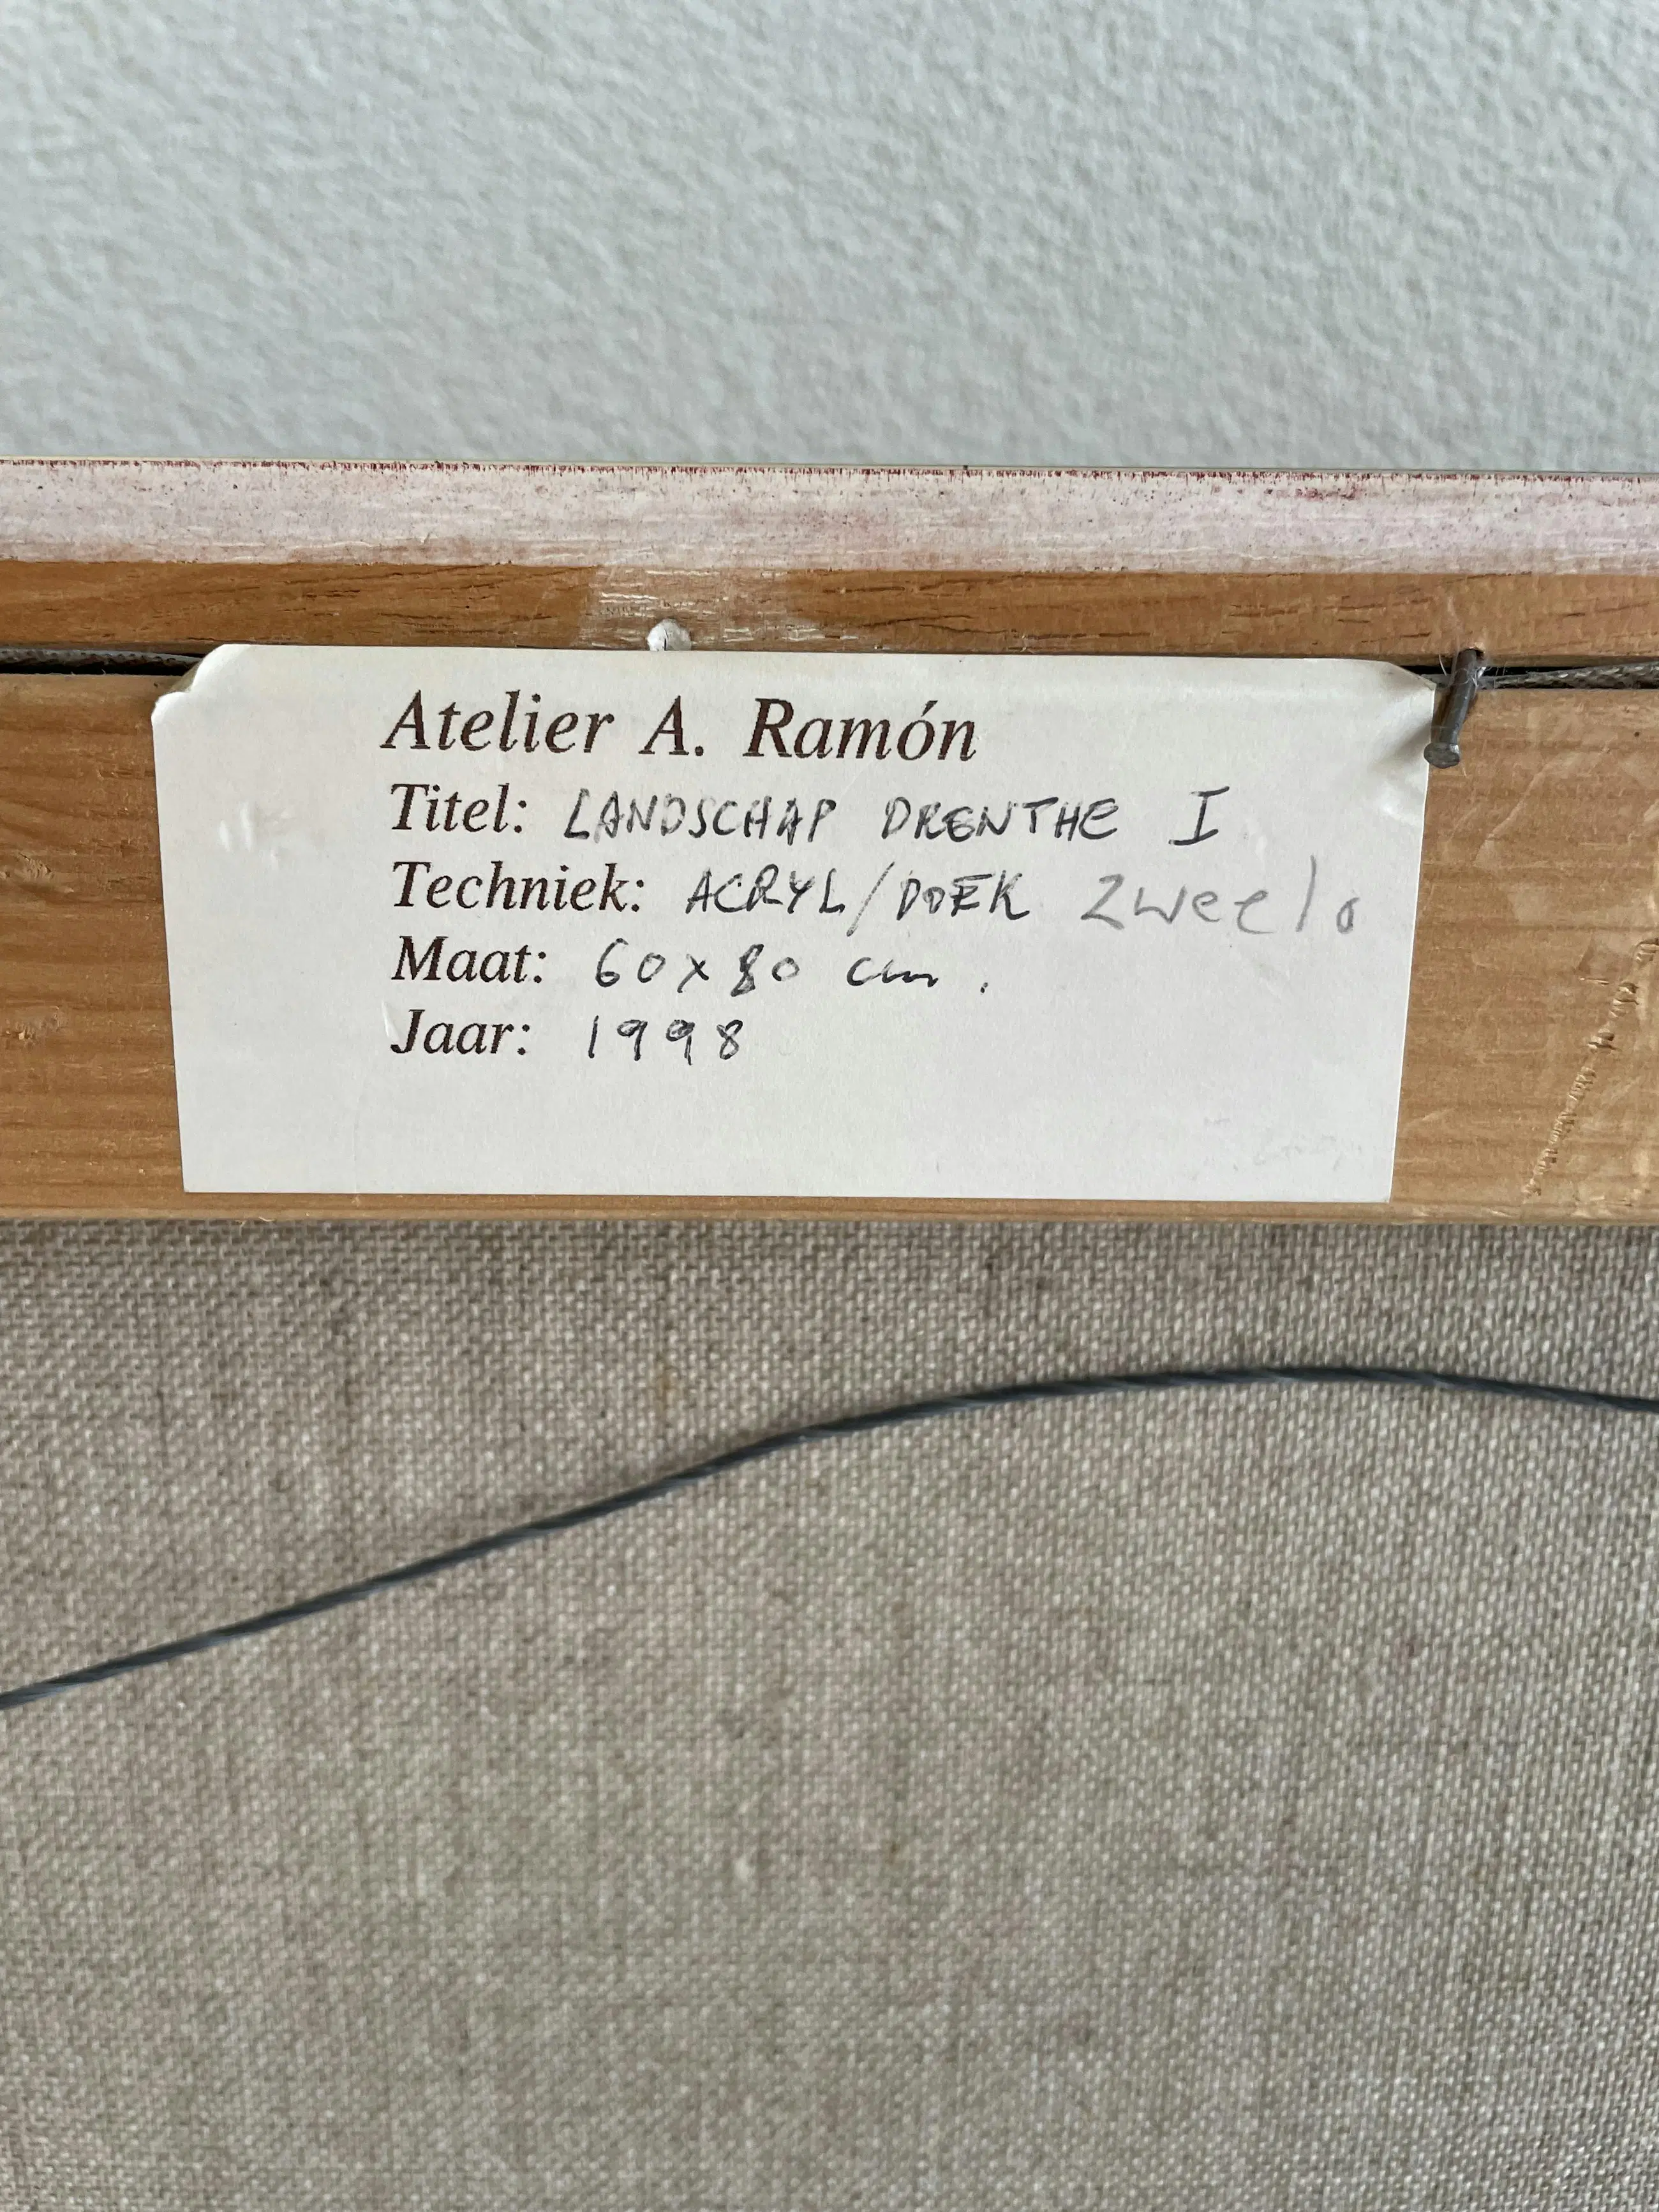 Atelier A. Ramón
Titel: LANDSCHAP DRENTHE I
Techniek: ACRYL/DOEK Zweelo
Maat: 60x80 cm.
Jaar: 1998